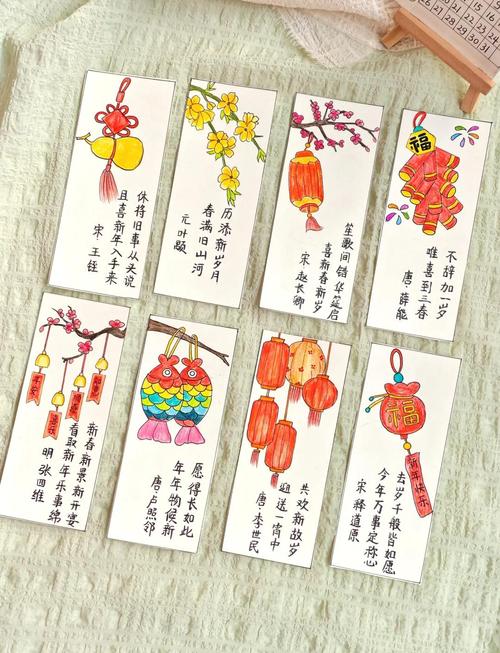 休将旧事从头说
且喜新年入手来
宋 王铚
历添新岁月
春满旧山河
元 叶颙
笙歌间错华筵启
喜新春新岁
宋 赵长卿
福
不辞加一岁
唯喜到三春
唐·薛能
平安
新春新景新开宴
看取新年乐事绵
明 张四维
愿得长如此
年年物候新
唐·卢照邻
共欢新故岁
迎送一宵中
唐·李世民
福
新年快乐
去岁千般皆如愿
今年万事定称心
宋 释道原